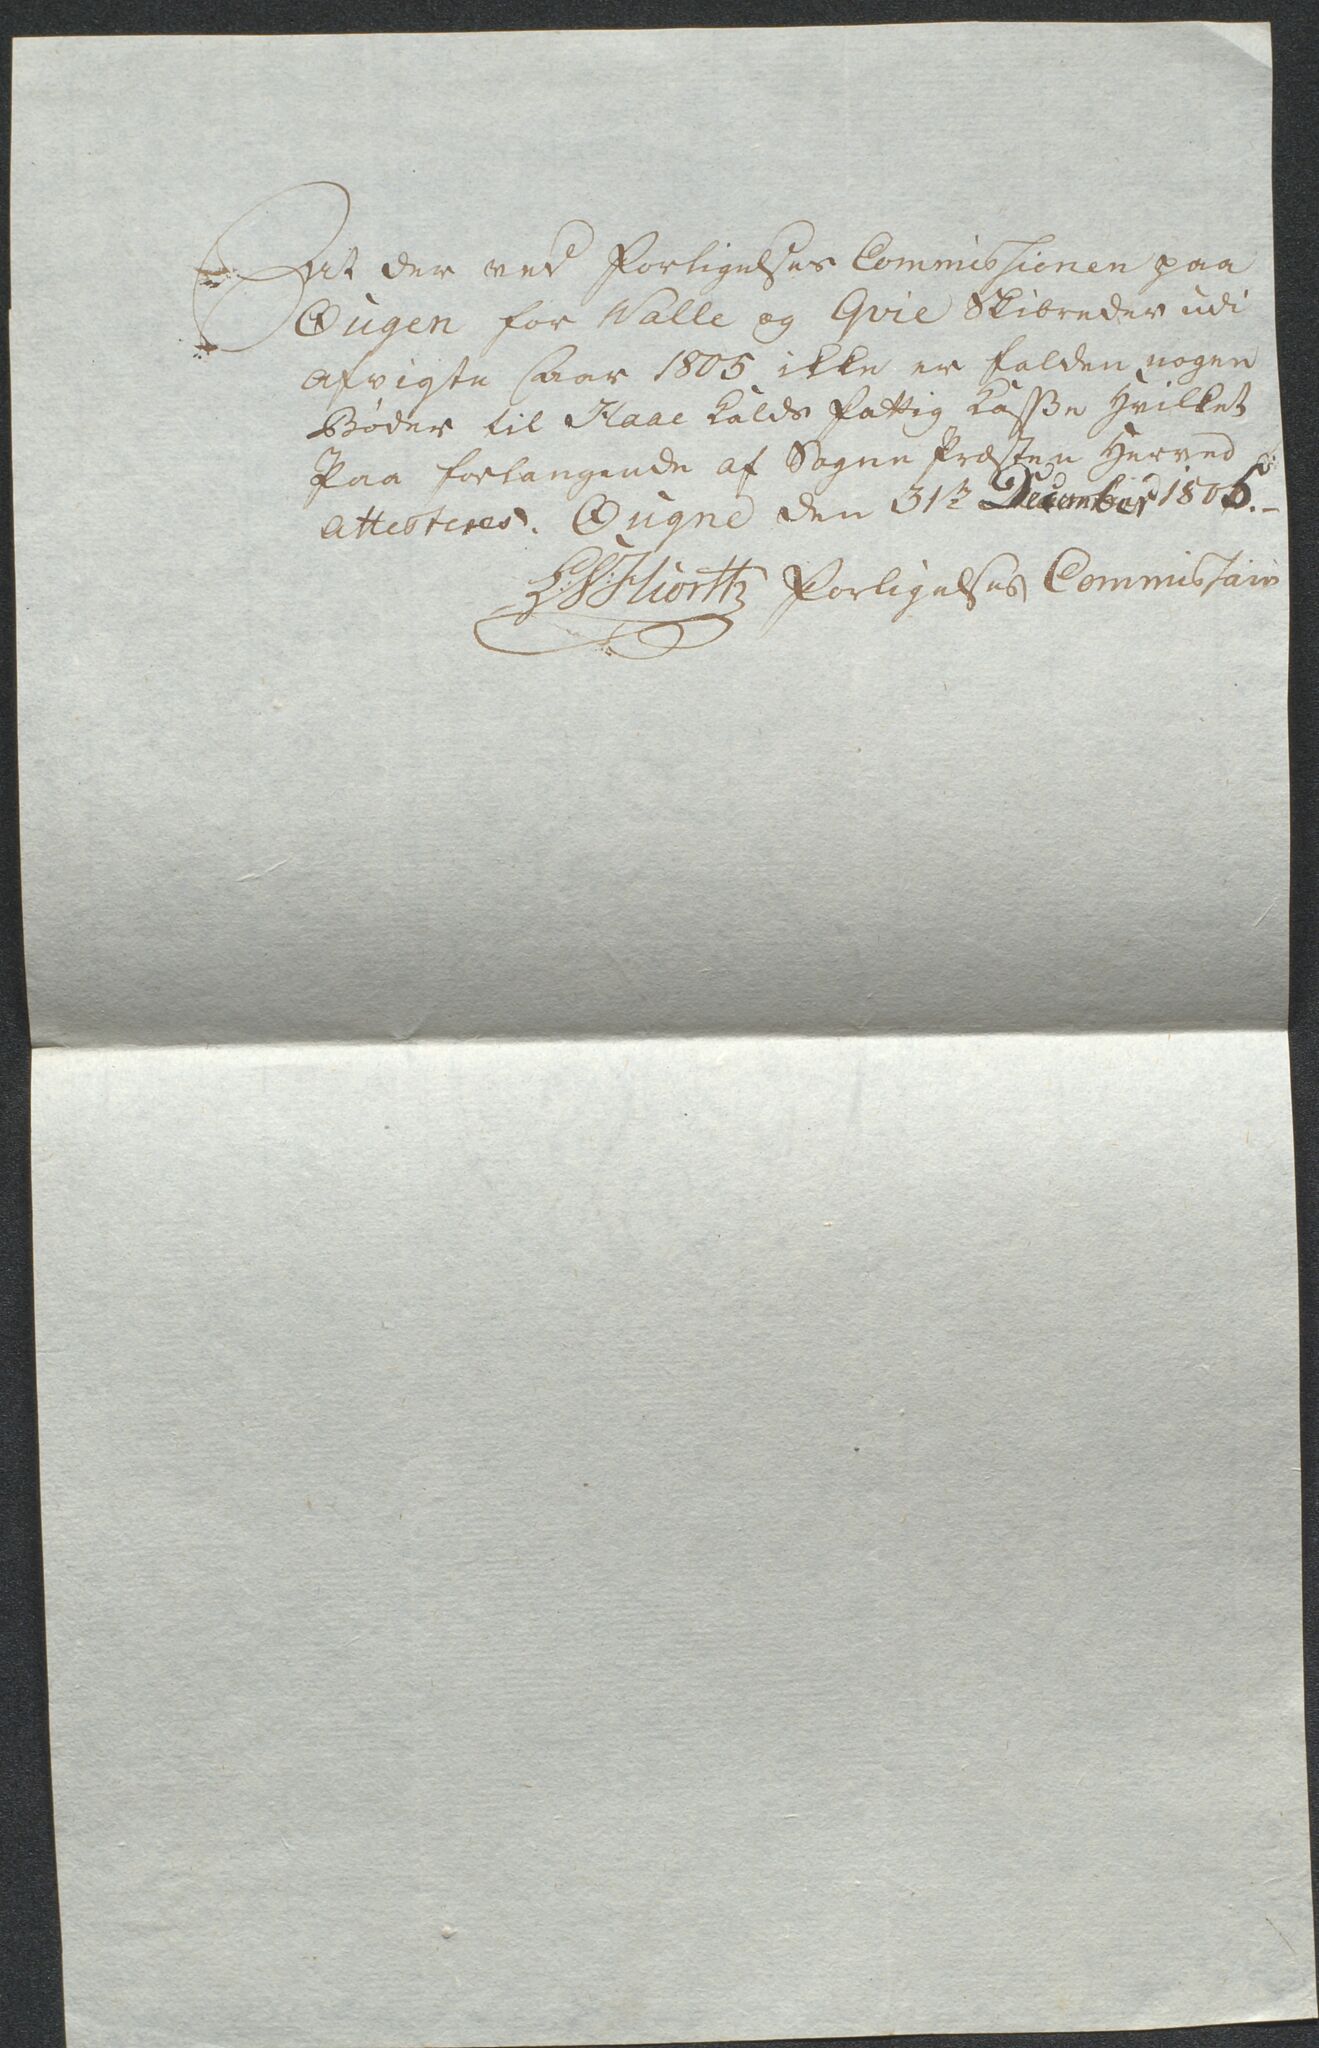 At der ved Forligelses Commissionen paa
Øugen for Walle og Qvie Skibreder udi
afvigte Aar 1805 ikke er falden nogen
Bøder til Klaae Kalds Fattig Kasse Hvilket
Paa forlangende af Sogne Præsten Herved
attesteres. Øugne den 31te December 1805.
Hiortt Forligelses Commissair